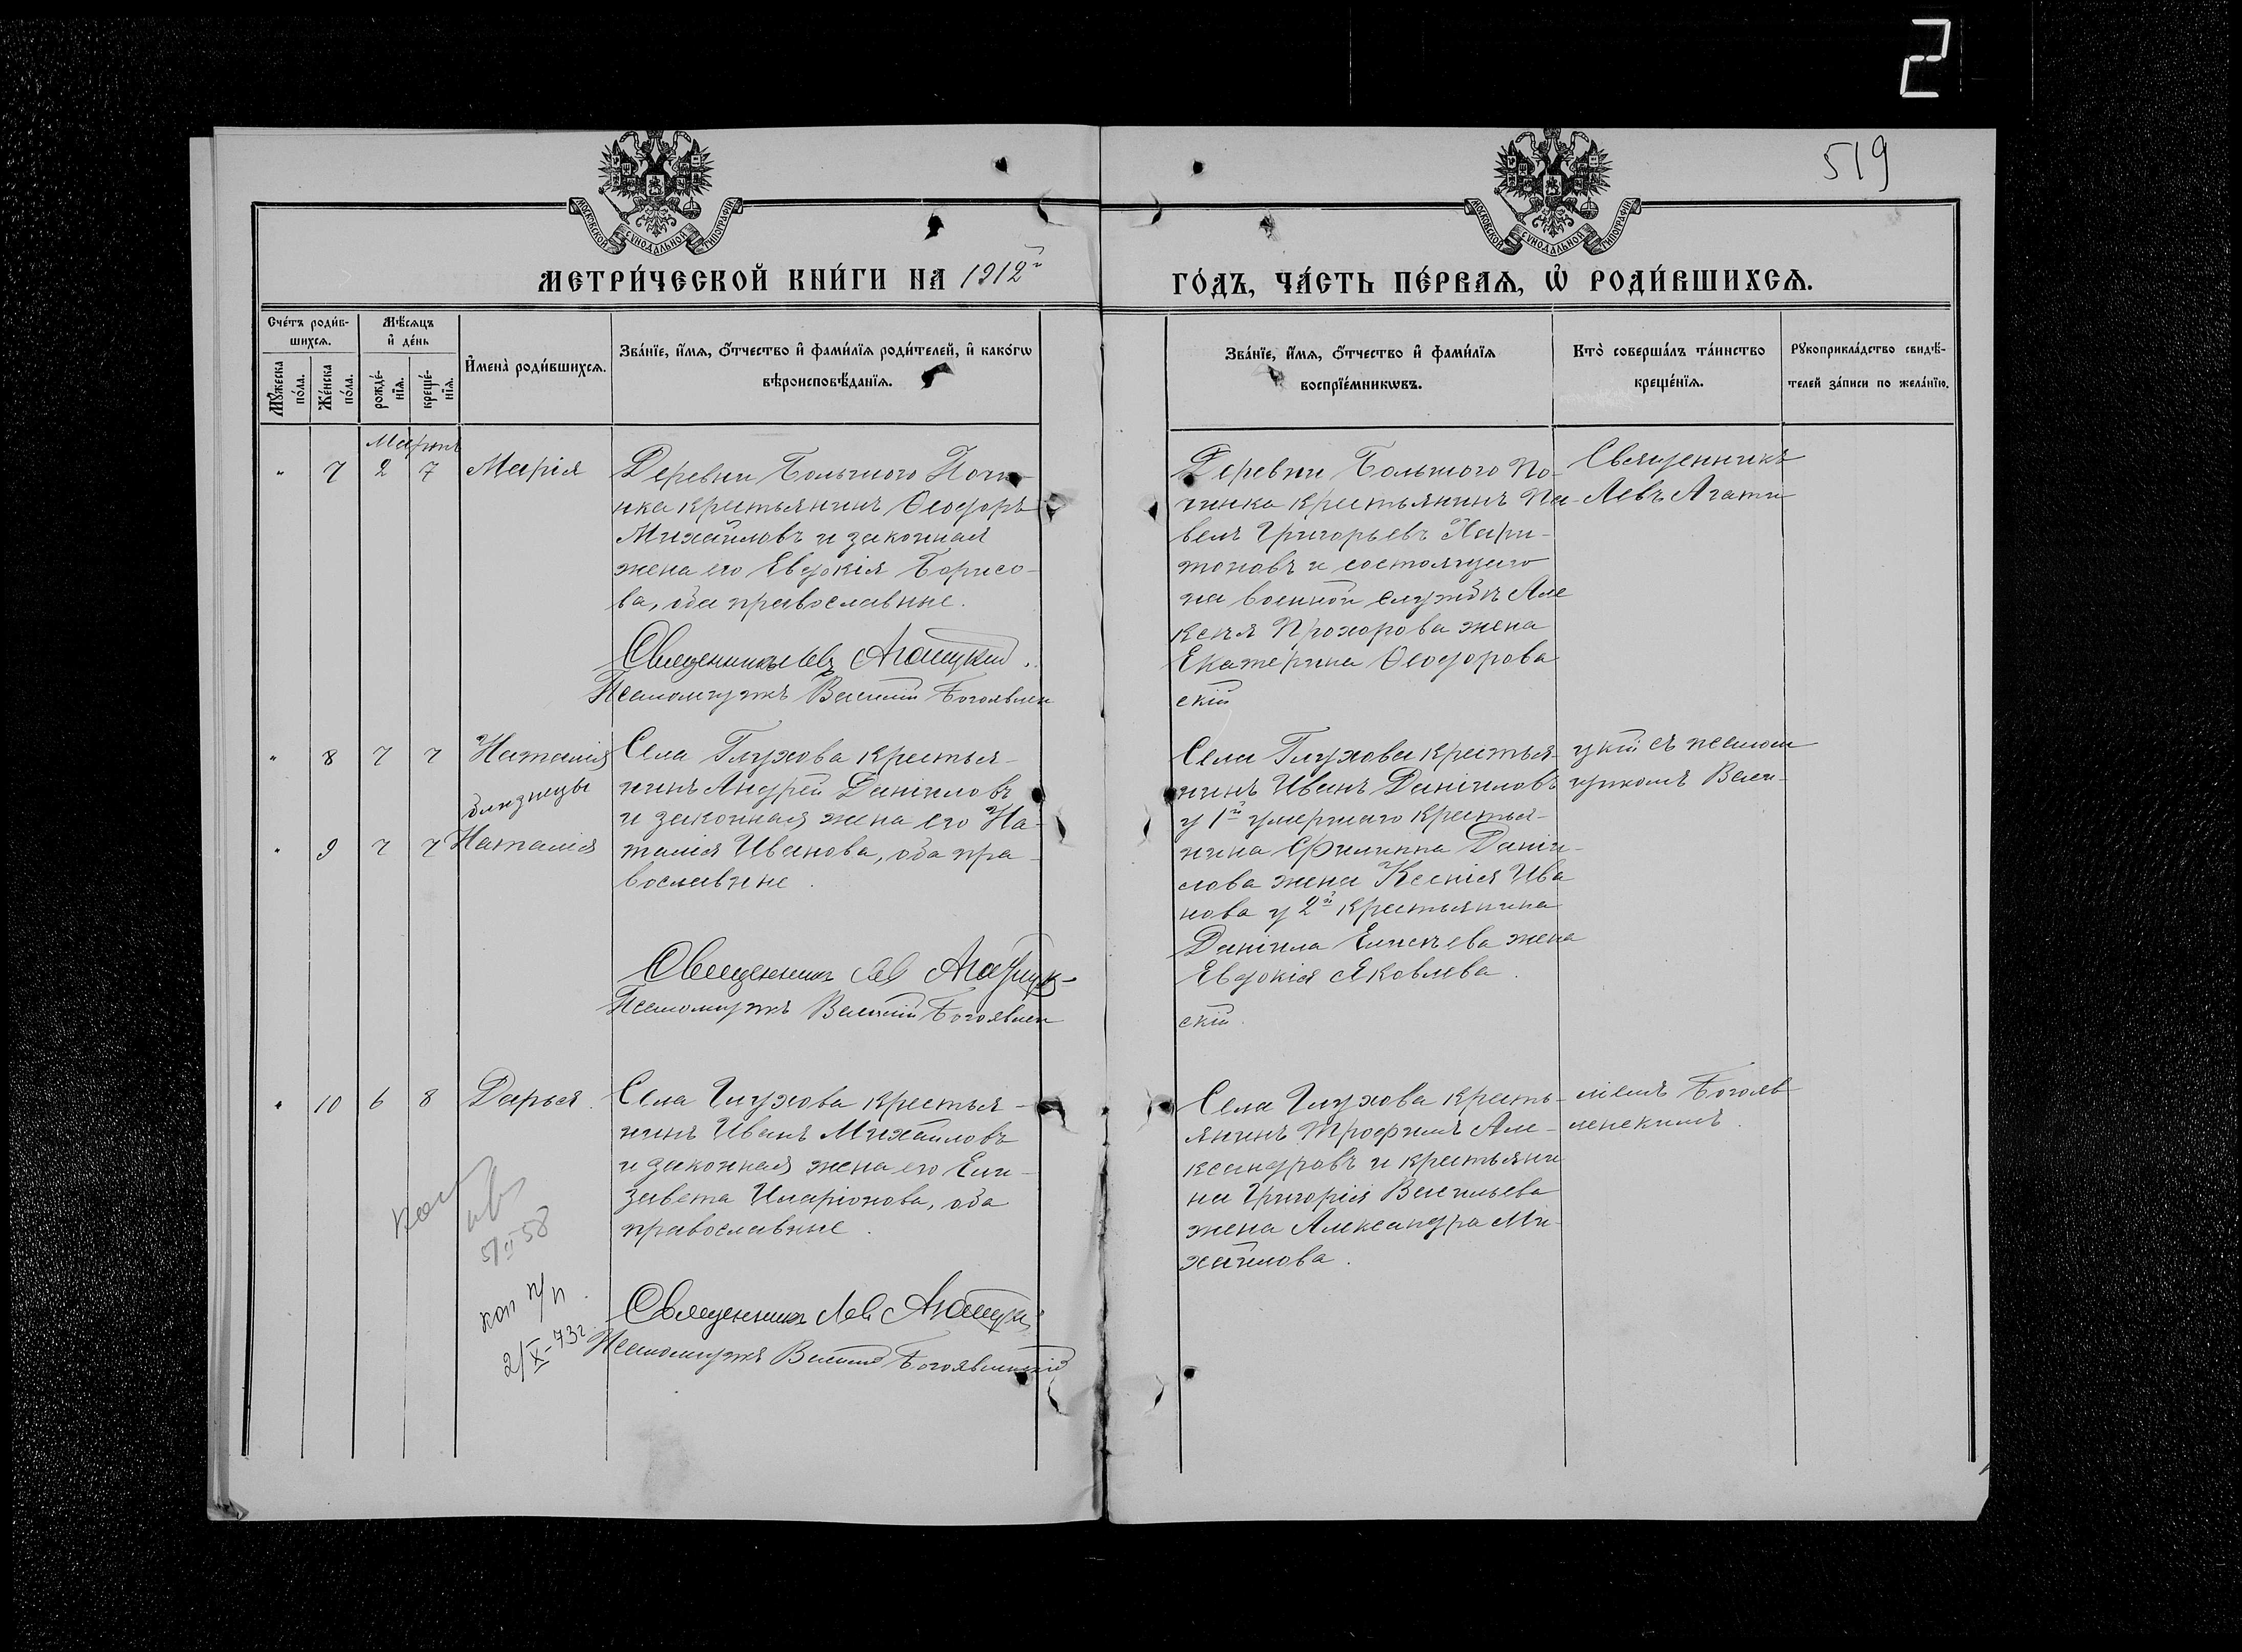 2
519
МОСКОВСКОЙ СѴНОДАЛЬНОЙ ТИПОГРАФІИ
МОСКОВСКОЙ СѴНОДАЛЬНОЙ ТИПОГРАФІИ
МЕТРИ́ЧЕСКОЙ КНИ́ГИ НА 1912й
ГО́ДЪ, ЧА́СТЬ ПЕ́РВАѦ, Ѽ РОДИ́ВШИХСѦ.
Сче́тъ роди́в-
шихсѧ.
Мꙋ́жеска
по́ла.
Же́нска
по́ла.
Мѣ́сѧцъ
и҆ де́нь
рожде́-
нїѧ.
креще́-
нїѧ.
И҆мена̀ роди́вшихсѧ.
Зва́нїе, и҆́мѧ, ѻ҆́тчество и҆ фами́лїѧ роди́телей, и҆ како́гѡ
вѣроисповѣ́данїѧ.
Зва́нїе, и҆́мѧ, ѻ҆́тчество и҆ фами́лїѧ
воспрїе́мникѡвъ.
Кто̀ соверша́лъ та́инство
креще́нїѧ.
Рꙋкоприкла́дство свидѣ́-
телей за́писи по жела́нїю.
Мартъ
" 7 2 7 Марія
Деревни Большого Почи-
нка крестьянинъ Ѳеодоръ
Михайловъ и законная
жена его Евдокія Борисо-
ва, оба православные.
Священникъ Левъ Агатицкій.
Псаломщикъ Василій Богоявлен
Деревни Большого По-
чинка крестьянинъ Па-
велъ Григорьевъ Хари-
тоновъ и состоящаго
на военной службѣ Але
ксѣя Прохорова жена
Екатерина Ѳеодорова
скій
Священникъ
Левъ Агати-
" 8 7 7 Наталія
близнецы
" 9 7 7 Наталія
Села Глухова крестья-
нинъ Андрей Даніиловъ
и законная жена его На-
талія Иванова, оба пра-
вославные.
Священникъ Левъ Агатицк-
Псаломщикъ Василій Богоявлен
Села Глухова крестья-
нинъ Иванъ Даніиловъ
у 1й умершаго крестья-
нина Филиппа Даніи-
лова жена Ксенія Ива
нова у 2й крестьянина
Даніила Елисѣева жена
Евдокія Яковлева.
скій.
цкій съ псалом
щикомъ Васи-
" 10 6 8 Дарья.
Села Глухова крестья-
нинъ Иванъ Михайловъ
и законная жена его Ели-
завета Иларіонова, оба
православные.
Священникъ Левъ Агатицкій
Псаломщикъ Василій Богоявленскій
Села Глухова кресть-
янинъ Трофимъ Але-
ксандровъ и крестьяни
на Григорія Васильева
жена Александра Ми-
хайлова.
ліемъ Богояв
ленскимъ.
5/II 58
коп п/п.
2/X-73г.